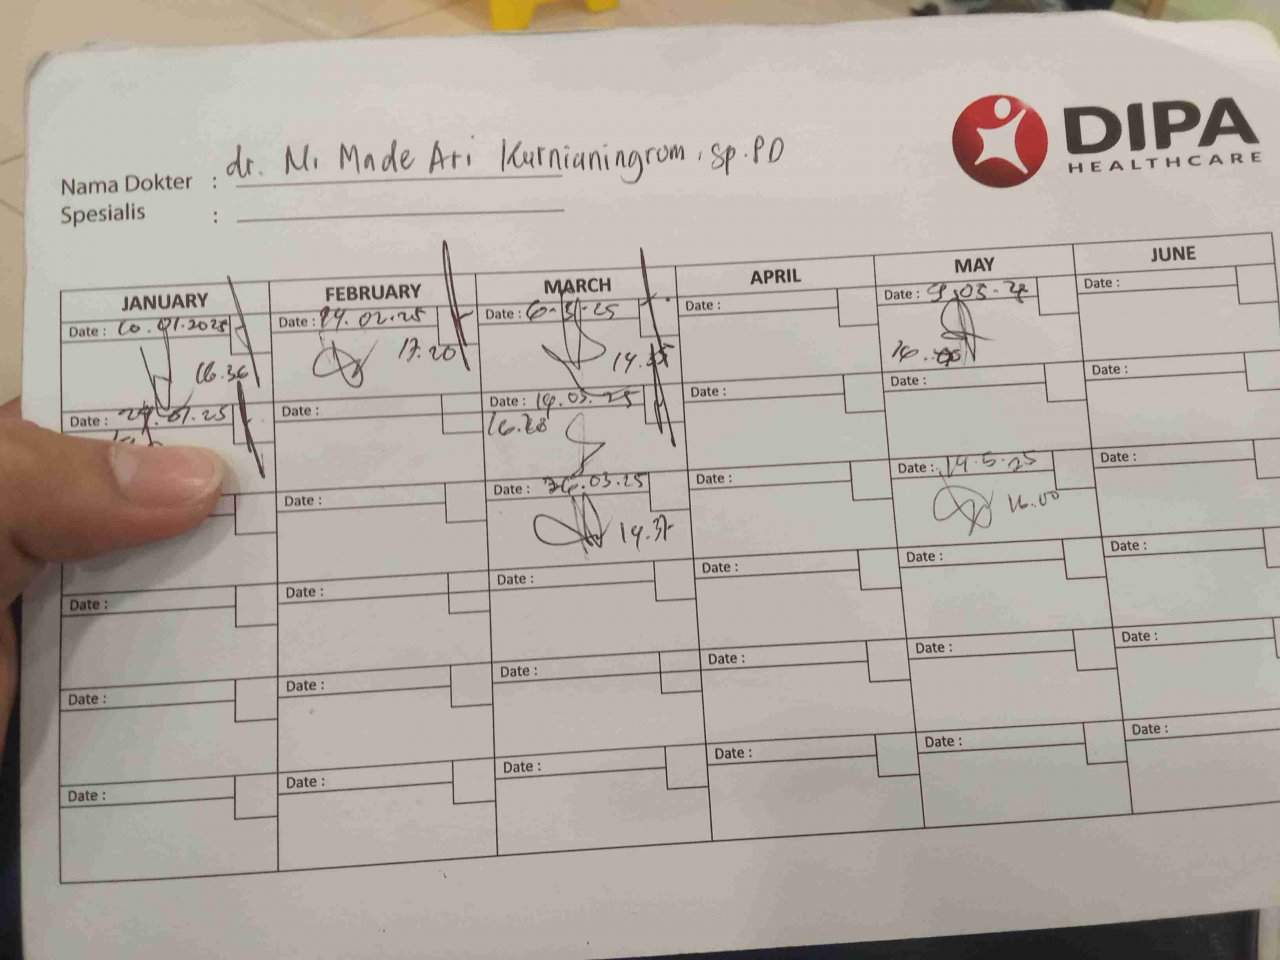 DIPA
HEALTHCARE
Nama Dokter : dr. Ni Made Ari Kurnianingrom, Sp.PD
Spesialis :
JANUARY FEBRUARY MARCH APRIL MAY JUNE
Date : 10.01.2025 Date : 19.02.25 Date : 6-3-25 Date : Date : 9.05. Date :
16.36 17.20 14. 16.
Date : .01.25 Date : Date : 14.03.25 Date : Date : Date :
16.28
Date : Date : 26.03.25 Date : Date : 14.5.25 Date :
14.37 16.00
Date : Date : Date : Date : Date : Date :
Date : Date : Date : Date : Date : Date :
Date : Date : Date : Date : Date : Date :